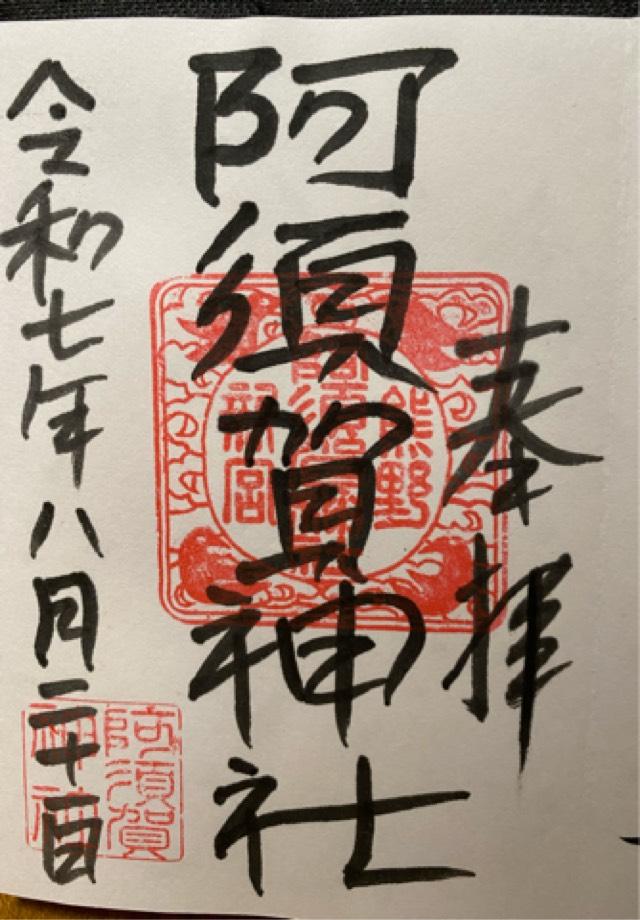 奉拝
阿須賀神社
熊野
令和七年八月二十一日
阿須賀
神社